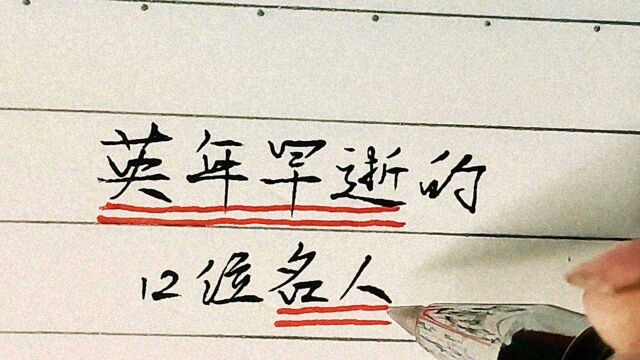 英年早逝的
12位名人